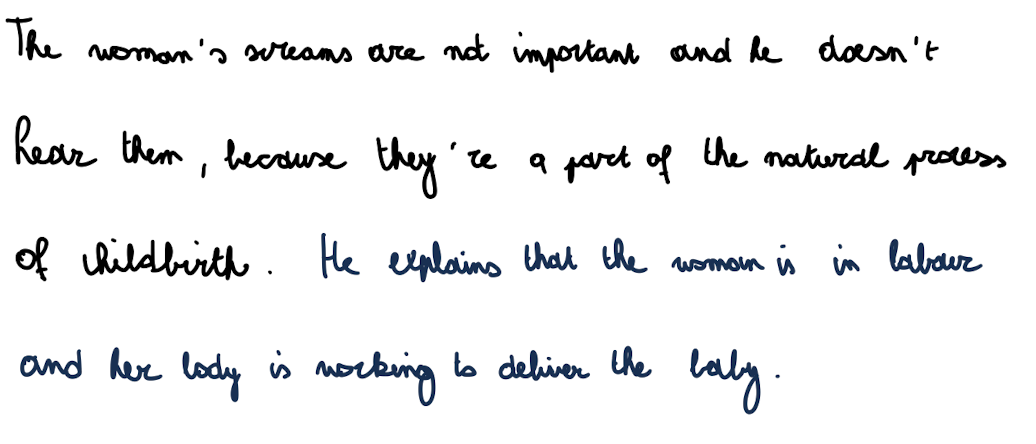 The woman's screams are not important and he doesn't
hear them, because they're a part of the natural process
of childbirth. He explains that the woman is in labour
and her body is working to deliver the baby.